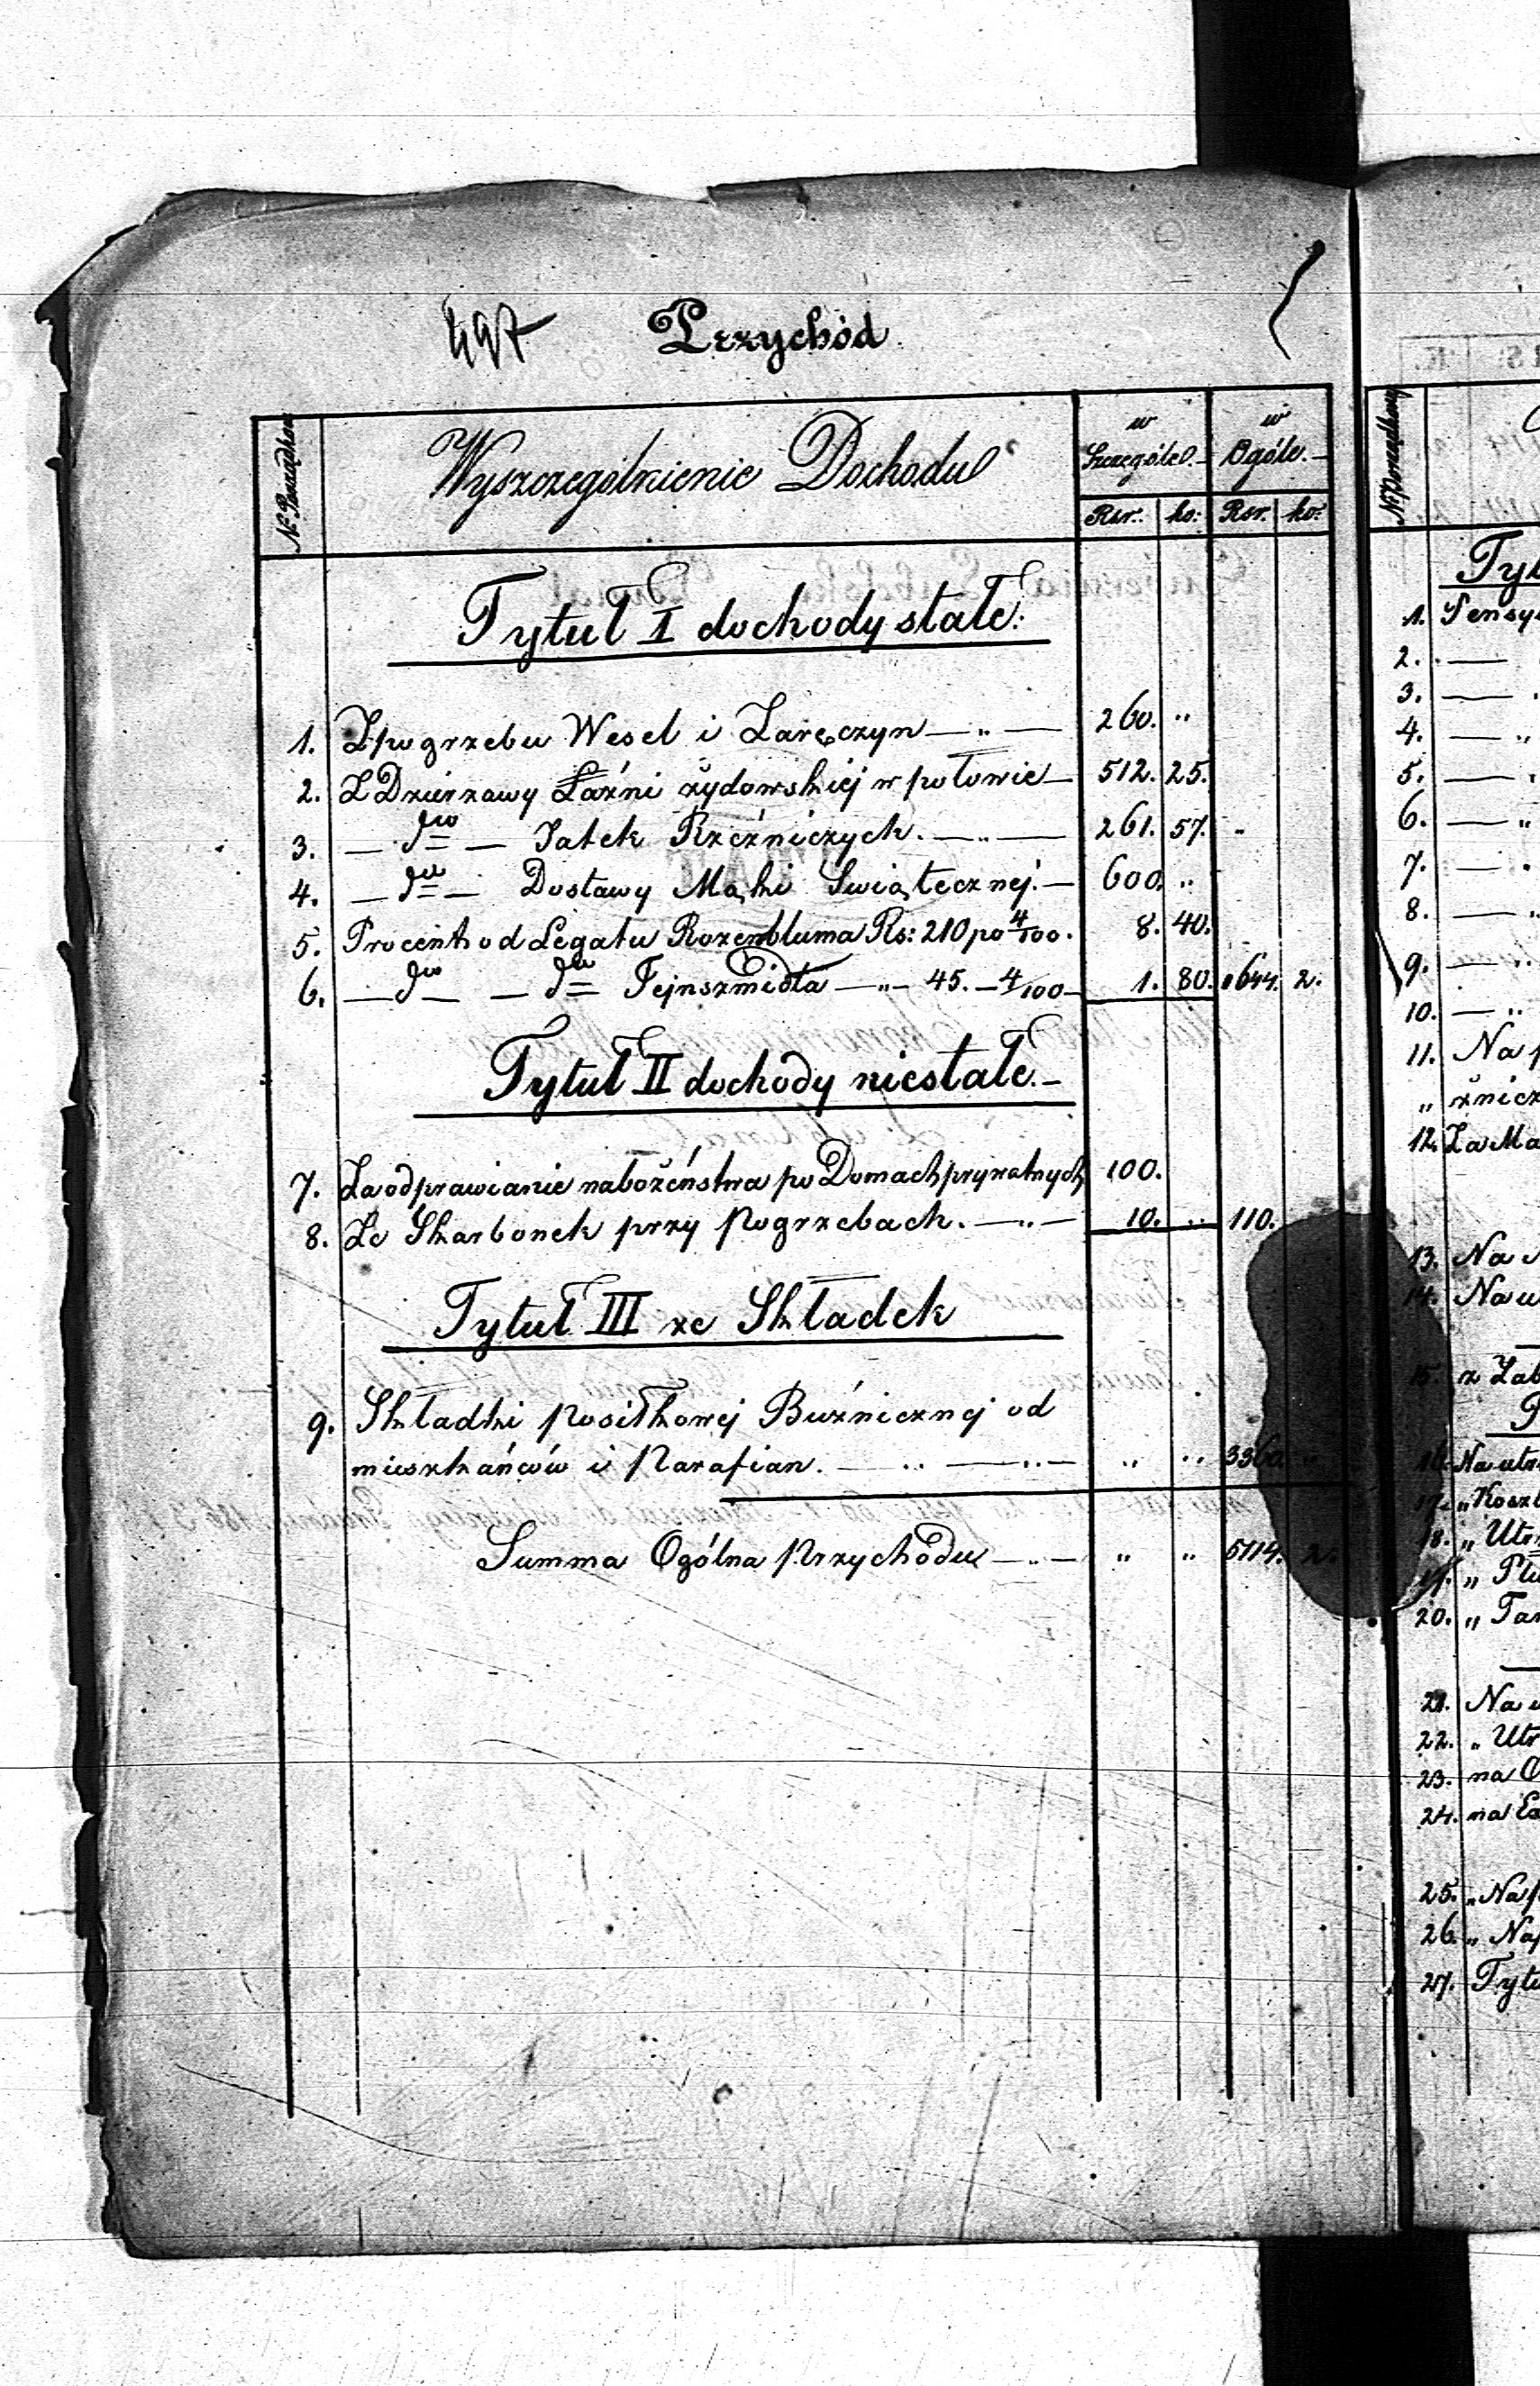 497
Przychód
Nr Porządkow
Wyszczególnienie Dochodu
w Szczególe.
w Ogóle.
Rsr. ko: Rsr. ko:
Tytuł I dochody stałe:
1. Z pogrzebu Wesel i Zaręczyn — " — 260. "
2. Z Dzierżawy Łaźni żydowskiej w połowie — 512. 25.
3. — dto — Jatek Rzeźniczych. — " — 261. 57.
4. — dto — Dostawy Mąki Świątecznej. — 600. "
5. Procent od Legatu Rozenbluma Rs: 210 po 4/100. 8. 40.
6. — dto — dto Fejnszmidta — " — 45. — 4/100 — 1. 80. 1644. 2.
Tytuł II dochody niestałe. —
7. Za odprawianie nabożeństwa po Domach prywatnych 100.
8. Ze Skarbonek przy Pogrzebach. — " — 10. " 110.
Tytuł III ze Składek
9. Składki Posiłkowej Bużnicznej od
mieszkańców i Parafian. — " — " — " " 3360 "
Summa Ogólna Przychodu — " — " " 5114. 2.
Nr Porządkowy
1.
2. —
3. —
4. — "
5. —
6. — "
7. —
8. — "
9. — "
10. — "
11. Na
"
12. Za
13. Na
14. Na
15. z
16. Na
17. "
18. "
19. "
20. "
21. Na
22. "
23. na
24. na
25. "
26. "
27.